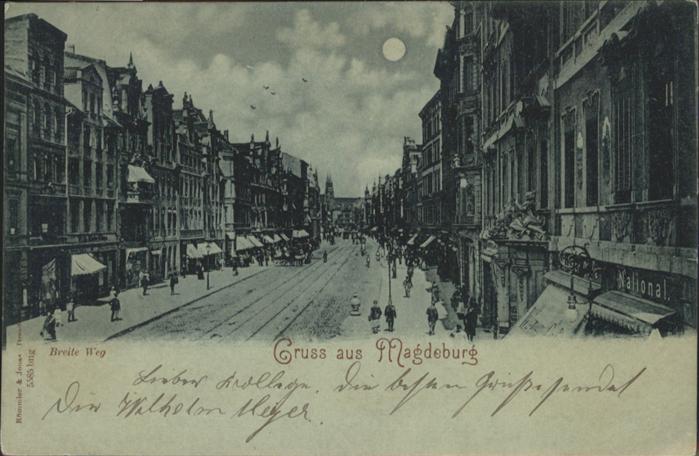 National.
Breite Weg
Gruss aus Magdeburg
Lieber Kollege. die besten Grüsse sendet
Dir Wilhelm Meyer.
Römmler & Jonas